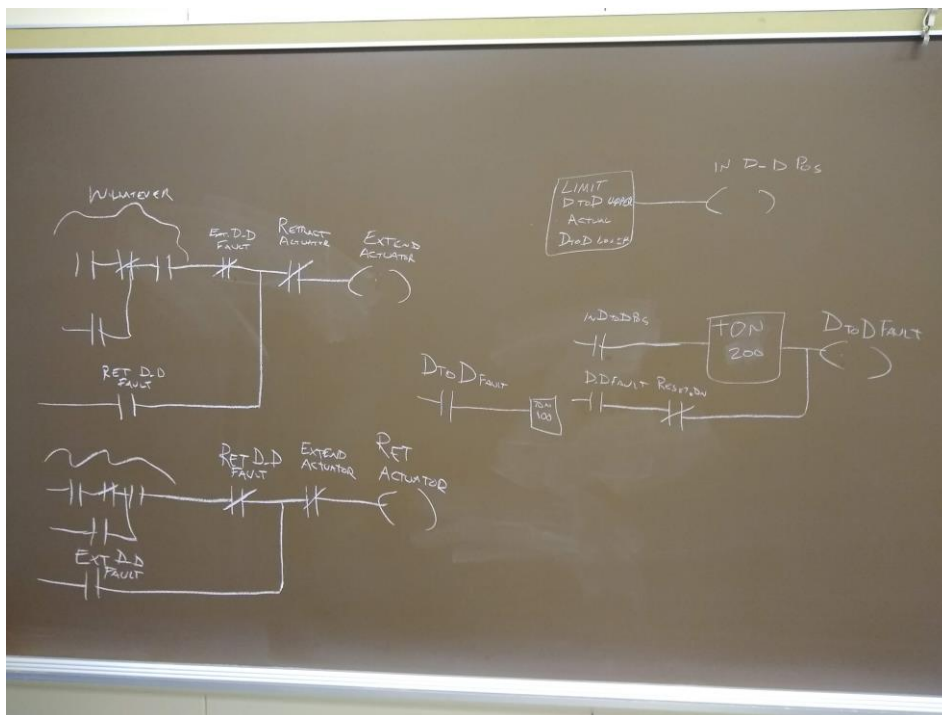 WHATEVER
EXT. D-D
FAULT
RETRACT
ACTUATOR
EXTEND
ACTUATOR
RET D.D
FAULT
RET D.D
FAULT
EXTEND
ACTUATOR
RET
ACTUATOR
EXT D.D
FAULT
LIMIT
DTOD UPPER
ACTUAL
DTOD LOWER
IN D-D POS
IN DTOD POS
TON
200
DTOD FAULT
DTOD FAULT
TON
100
D.D FAULT